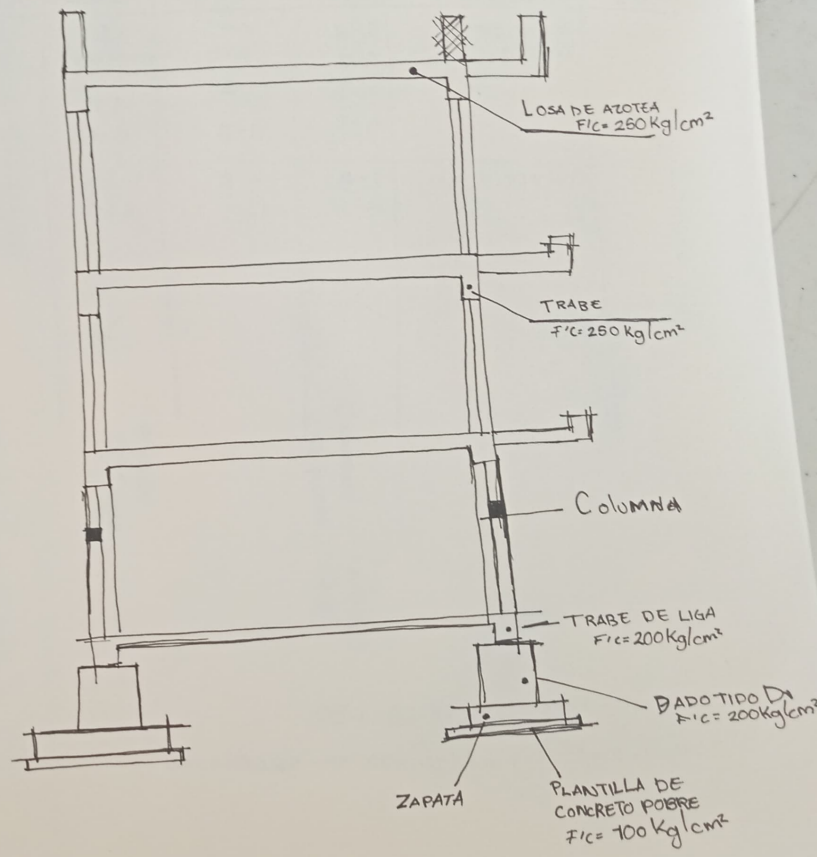 LOSA DE AZOTEA
F'C= 250 Kg/cm²
TRABE
F'C= 250 Kg/cm²
COLUMNA
TRABE DE LIGA
F'C= 200 Kg/cm²
DADO TIPO D1
F'C= 200 Kg/cm²
ZAPATA
PLANTILLA DE
CONCRETO POBRE
F'C= 100 Kg/cm²